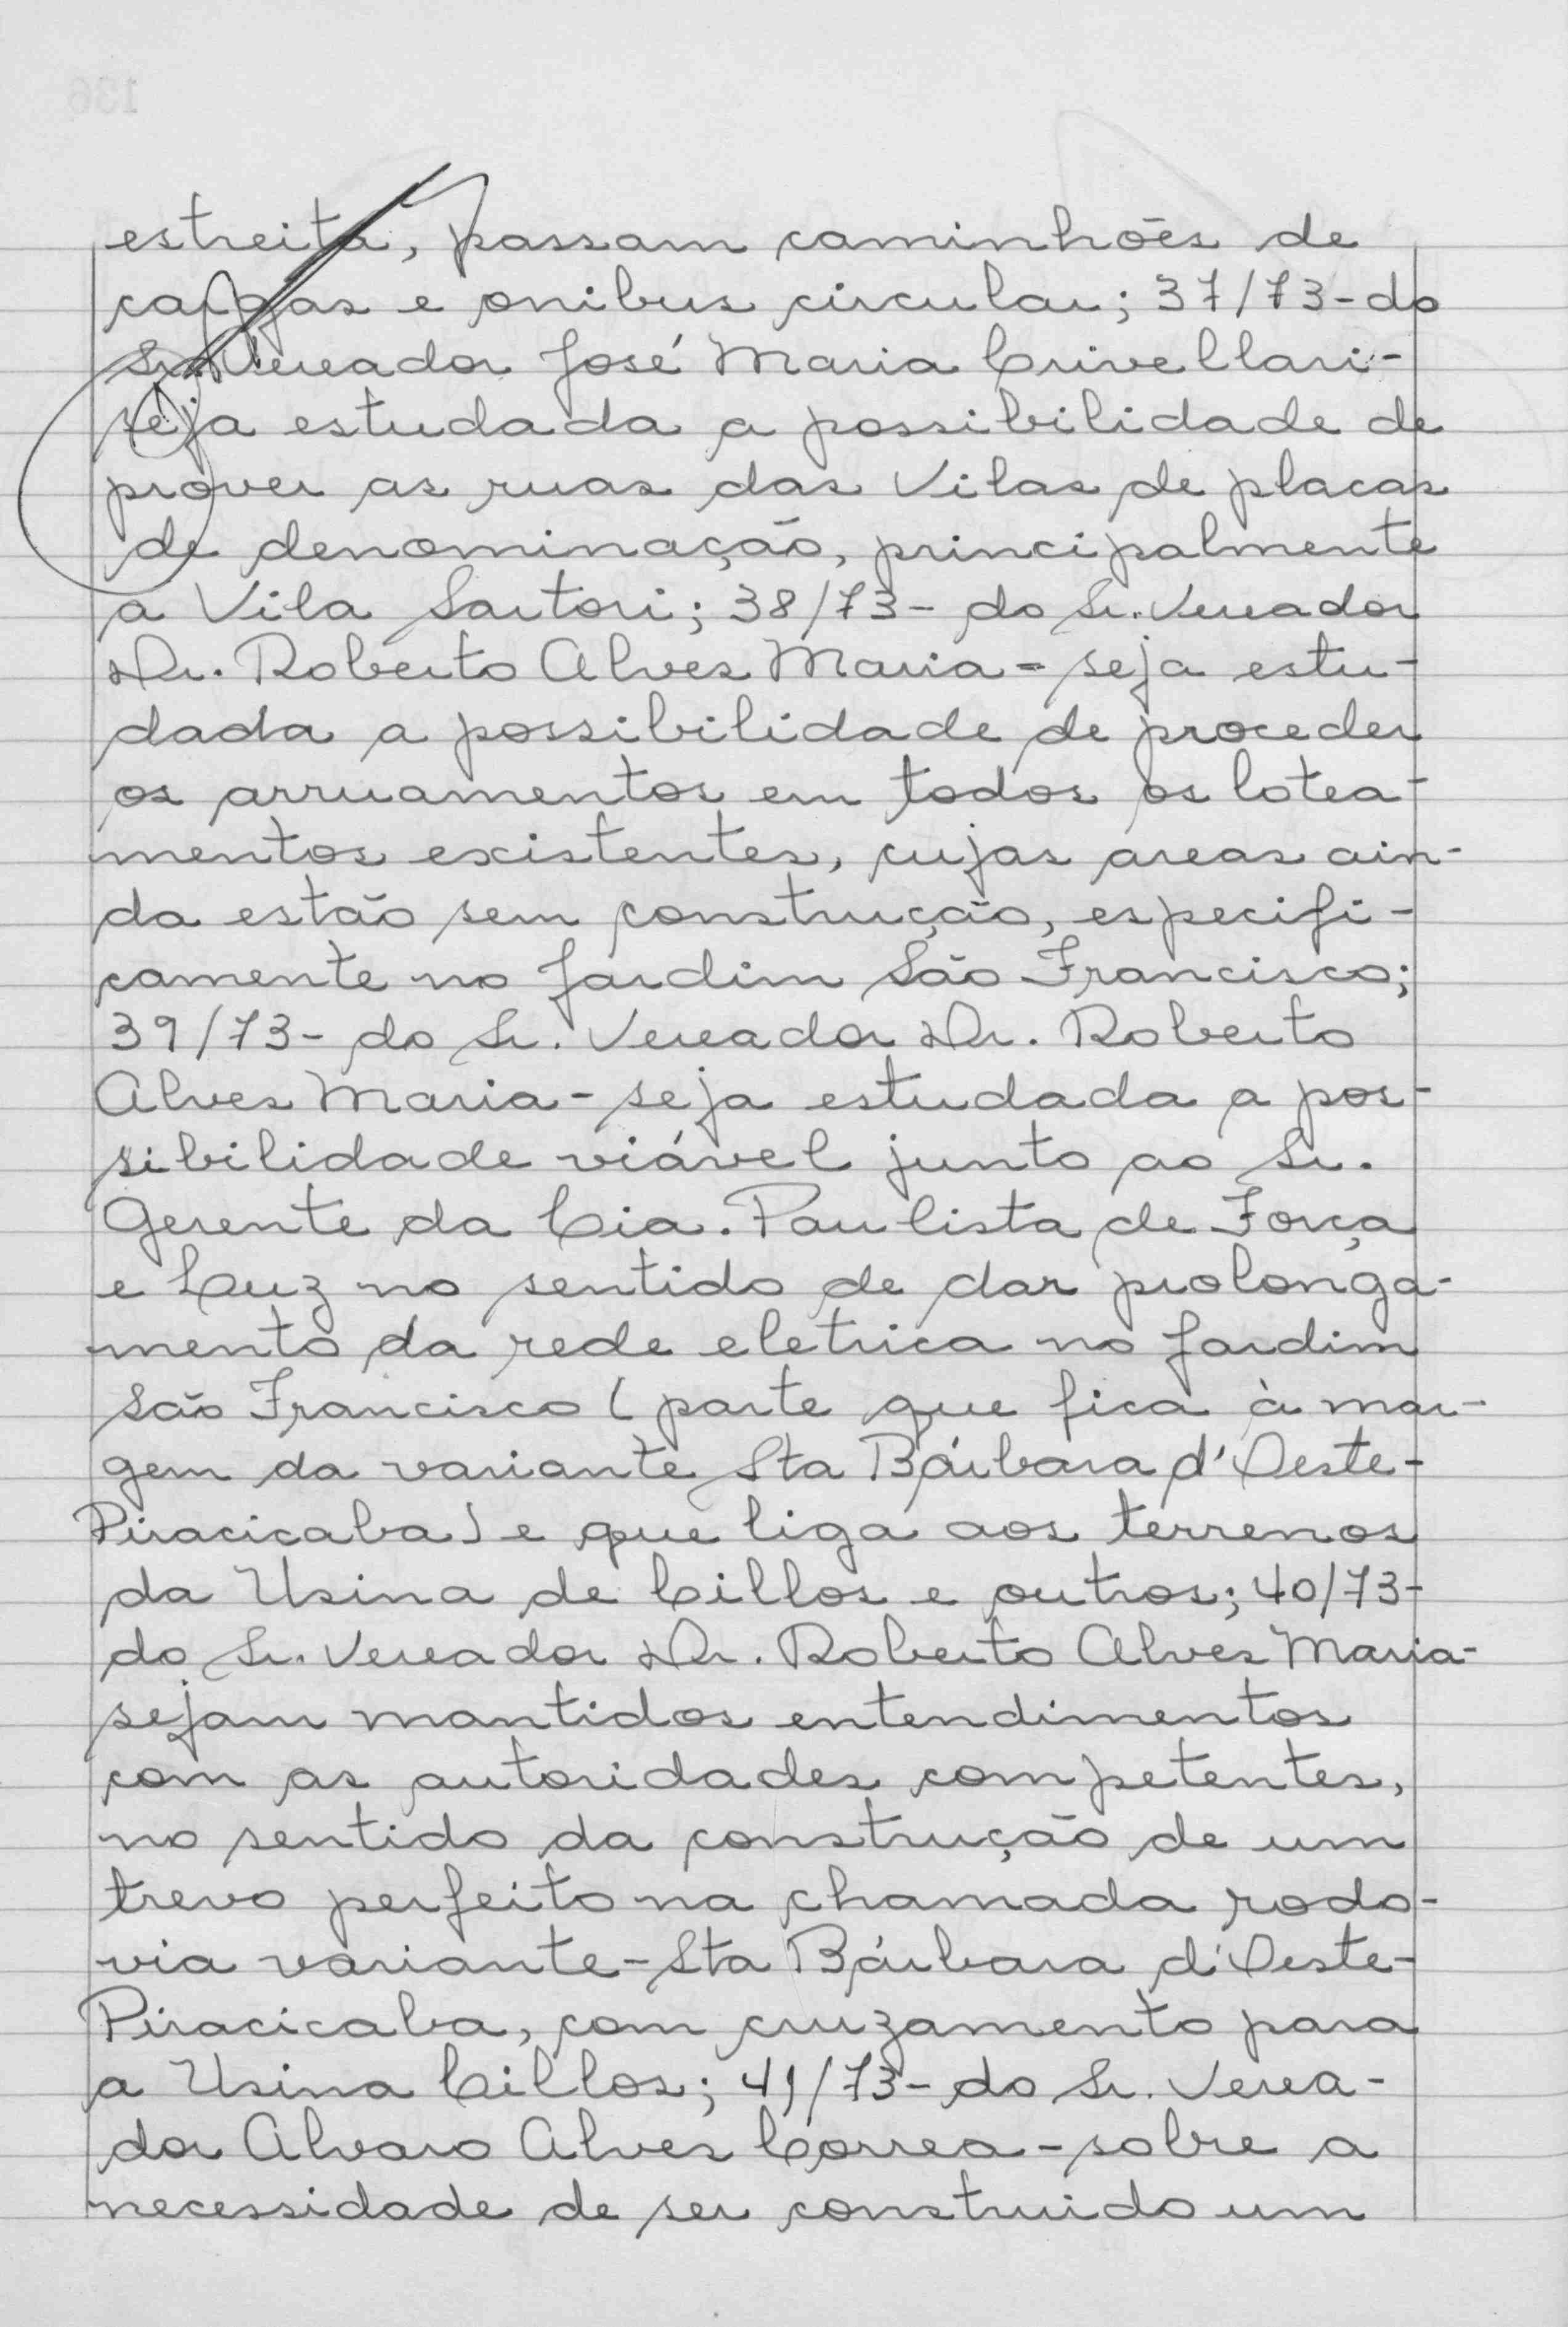 estreita, passam caminhões de
cargas e onibus circular; 37/73-do
Sr. Vereador José Maria Crivellari-
seja estudada a possibilidade de
prover as ruas das Vilas de placas
de denominação, principalmente
a Vila Sartori; 38/73- do Sr. Vereador
Dr. Roberto Alves Maria - seja estu-
dada a possibilidade de proceder
os arruamentos em todos os lotea-
mentos existentes, cujas areas ain-
da estão sem construção, especifi-
camente no Jardim São Francisco;
39/73- do Sr. Vereador Dr. Roberto
Alves Maria - seja estudada a pos-
sibilidade viável junto ao Sr.
Gerente da Cia. Paulista de Força
e Luz no sentido de dar prolonga-
mento da rede eletrica no Jardim
São Francisco (parte que fica à mar-
gem da variante Sta Bárbara d'Oeste-
Piracicaba) e que liga aos terrenos
da Usina de Cillos e outros; 40/73-
do Sr. Vereador Dr. Roberto Alves Maria-
sejam mantidos entendimentos
com as autoridades competentes,
no sentido da construção de um
trevo perfeito na chamada rodo-
via variante - Sta Bárbara d'Oeste-
Piracicaba, com cruzamento para
a Usina Cillos; 41/73- do Sr. Verea-
dor Alvaro Alves Correa - sobre a
necessidade de ser construido um